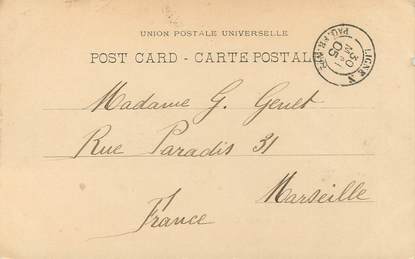 UNION POSTALE UNIVERSELLE
POST CARD - CARTE POSTALE
LIGNE N
PAQ. FR. Nº
30
05
Madame G. Genet
Rue Paradis 31
Marseille
France